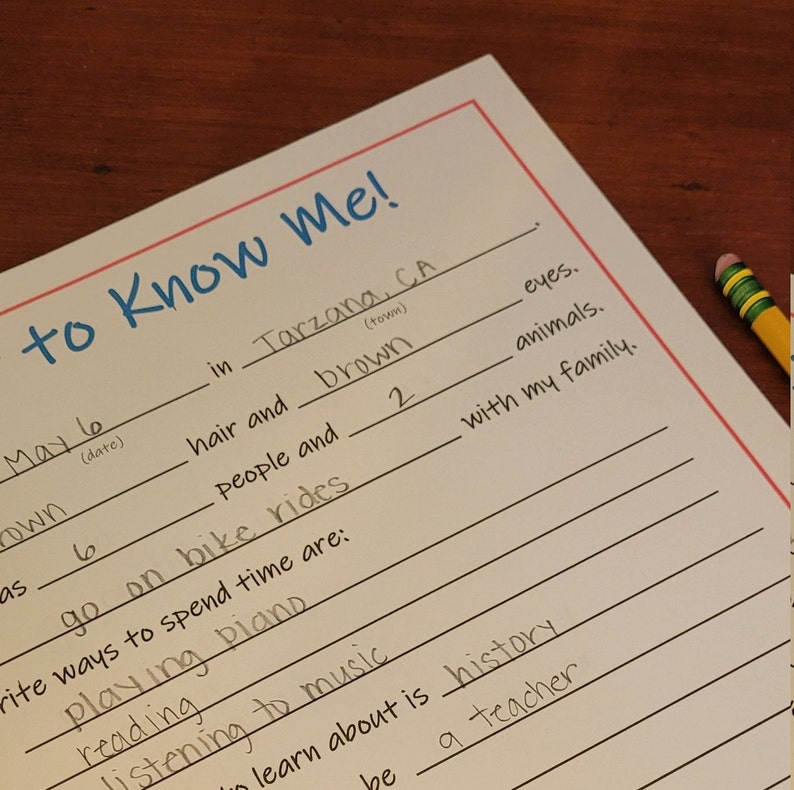 to Know Me!
May 6 in Tarzana, CA.
(date) (town)
own hair and brown eyes.
as 6 people and 2 animals.
go on bike rides with my family.
rite ways to spend time are:
playing piano
reading
listening to music
to learn about is history
be a teacher